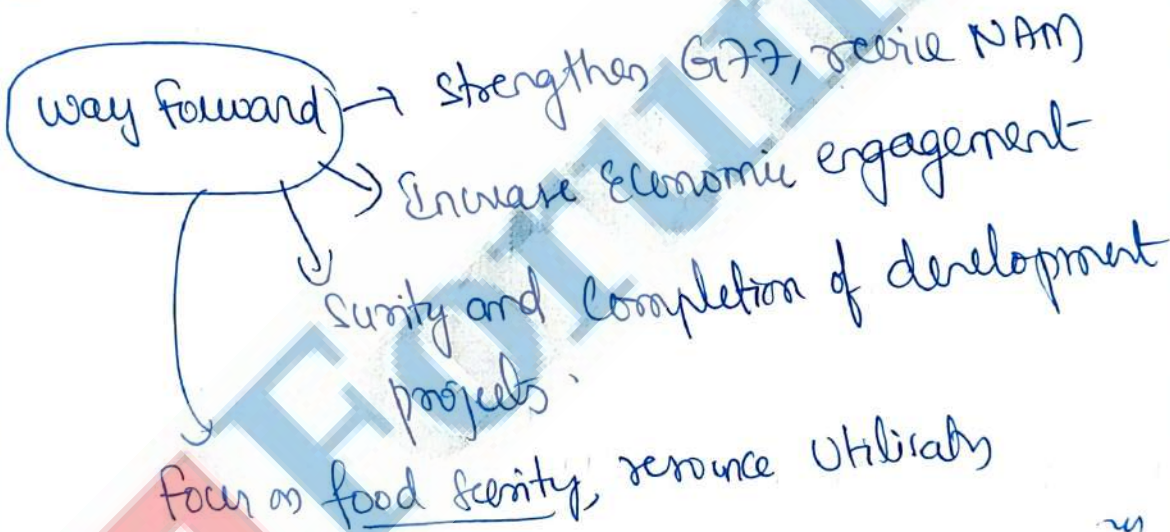 way forward → Strengthen G77, revive NAM
→ Increase Economic engagement
→ Surity and Completion of development
projects.
→ Focus on food security, resource Utilisatn
Forum